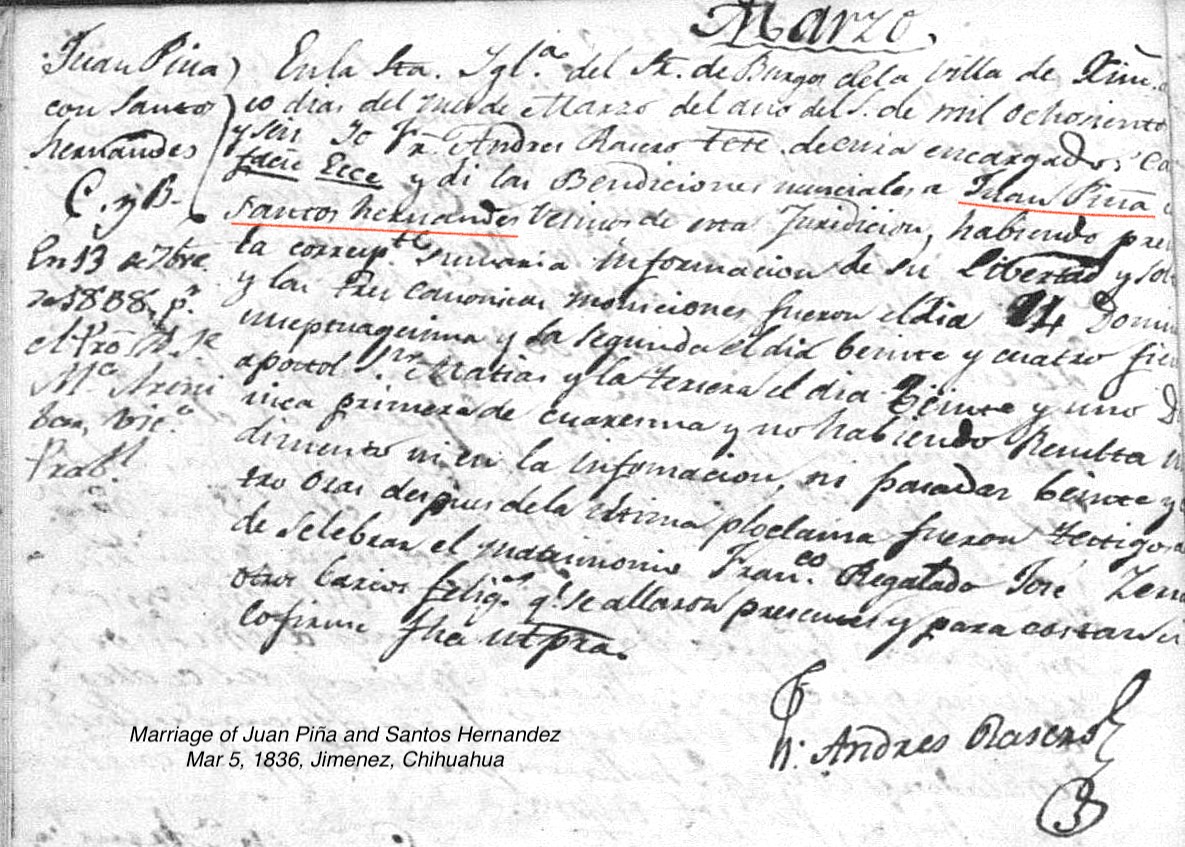 Marzo.
Juan Piña
con Santos
hernandes
C. y B.
En 13 de 7bre.
de 1838, pr.
el Pro
Mª
Vic.º
En la Sta. Yglª. del St. de Burgos dela Villa de Xim.
co dias del mes de Marzo del año del S. de mil ochociento
y seis Yo Fr. Andres Rasero Tete. de cura encargado, Ca
facie Ecce y di las Bendiciones nunciales a Juan Piña
Santos hernandes Vecinos de esta Juridicion, habiendo pre
la corresp.te sumaria informacion de su Libertad y sol
y las tres canonicas moniciones fueron el dia 14 Domi
y la segunda el dia beinte y cuatro fies
apostol Sr. Matias y la tersera el dia Beinte y uno D
inica primera de cuaresma y no habiendo Resulta
dimento ni en la infomacion, ni pasadas beinte y
tro Oras despues dela ultima ploclama fueron testigos
de Selebrar el matrimonio Fran.co Regalado José
otros barios felig.s q.e se allaron presentes y para costansi
lo firme fha ut pra.
Fr. Andres Rasero
3
Marriage of Juan Piña and Santos Hernandez
Mar 5, 1836, Jimenez, Chihuahua